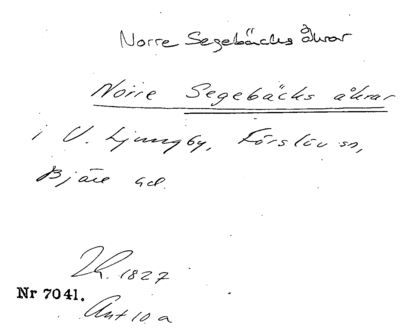 Norre Segebäcks åkrar
Norre Segebäcks åkrar
i V. Ljungby, Förslöv sn,
Bjäre hd.
1827
Nr 7041.
Ant 10 a